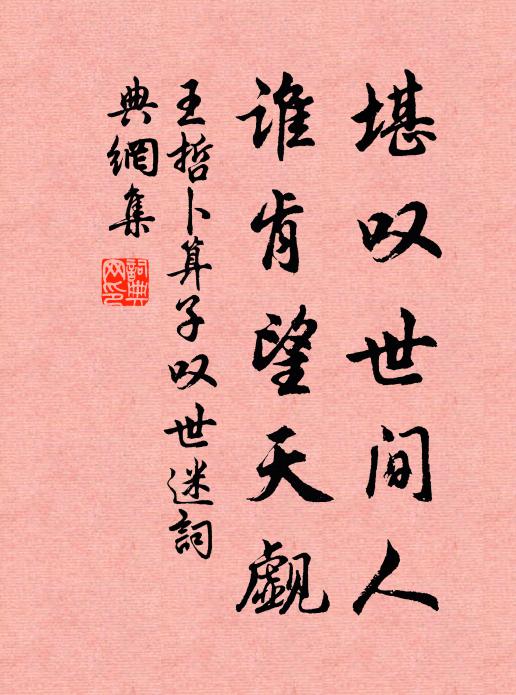 堪叹世间人
谁肯望天觑
王哲卜算子叹世迷詞
典網集
詞典網印